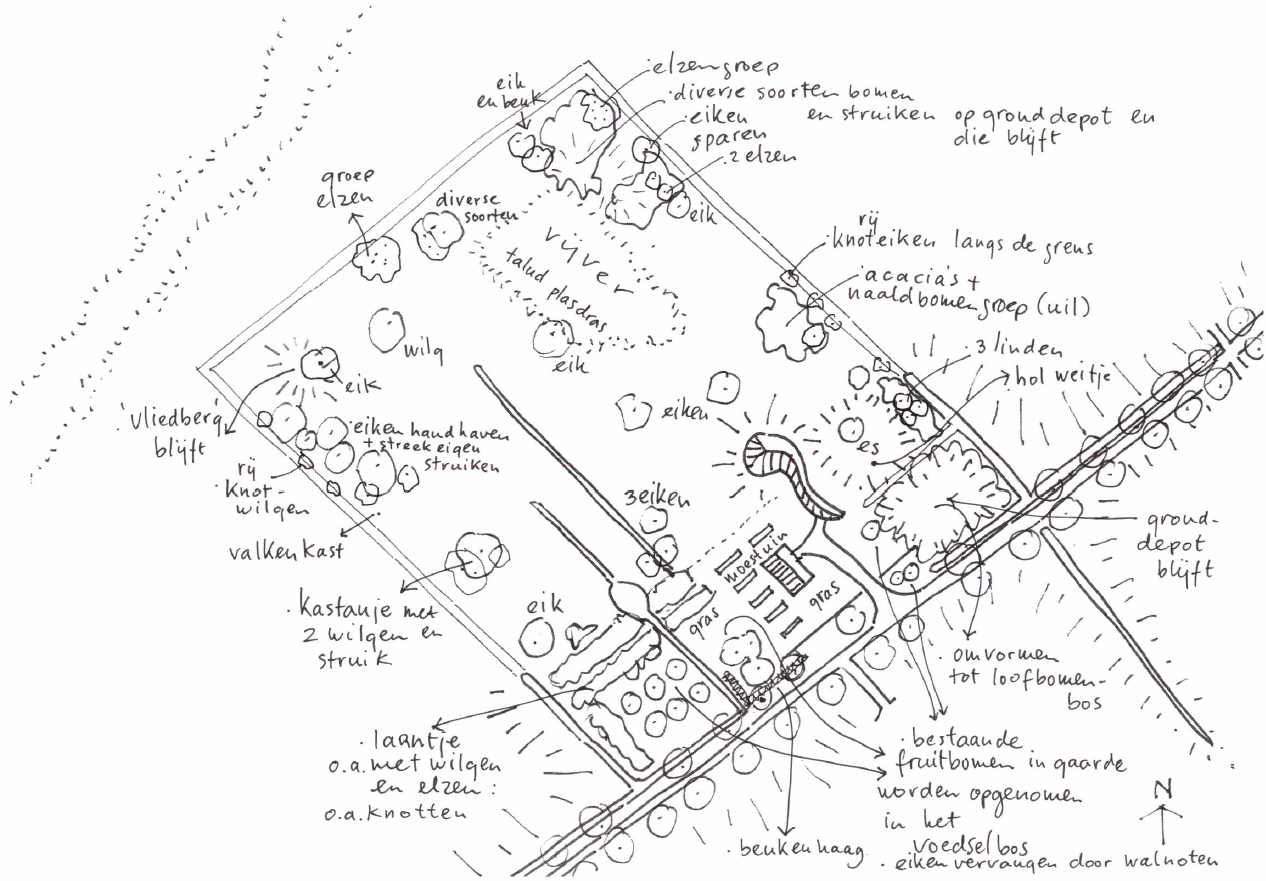 elzengroep
eik
en beuk
diverse soorten bomen
en struiken op gronddepot en
die blijft
eiken
sparen
2 elzen
eik
groep
elzen
diverse
soorten
vijver
talud plasdras
rij
knoteiken langs de grens
acacia's +
naaldbomengroep (uil)
wilg
eik
eik
3 linden
hol weitje
'vliedberg'
blijft
eiken handhaven
+ streekeigen
struiken
eiken
es
rij
knot-
wilgen
valkenkast
3 eiken
moestuin
gras
gras
grond-
depot
blijft
kastanje met
2 wilgen en
struik
eik
omvormen
tot loofbomen-
bos
laantje
o.a. met wilgen
en elzen:
o.a. knotten
bestaande
fruitbomen in gaarde
worden opgenomen
in het
voedselbos
N
beukenhaag
eiken vervangen door walnoten